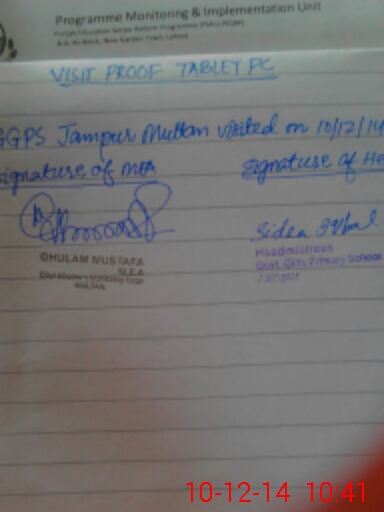 Programme Monitoring & Implementation Unit
Punjab Education Sector Reform Programme (PMIU-PESRP)
Block, New Garden Town, Lahore
VISIT PROOF TABLET PC
GGPS Jampur Multan visited on 10/12/14
signature of MEA signature of He
Sidra Iqbal
GHULAM MUSTAFA
M.E.A
Headmistress
Govt. Girls Primary School
10-12-14 10:41